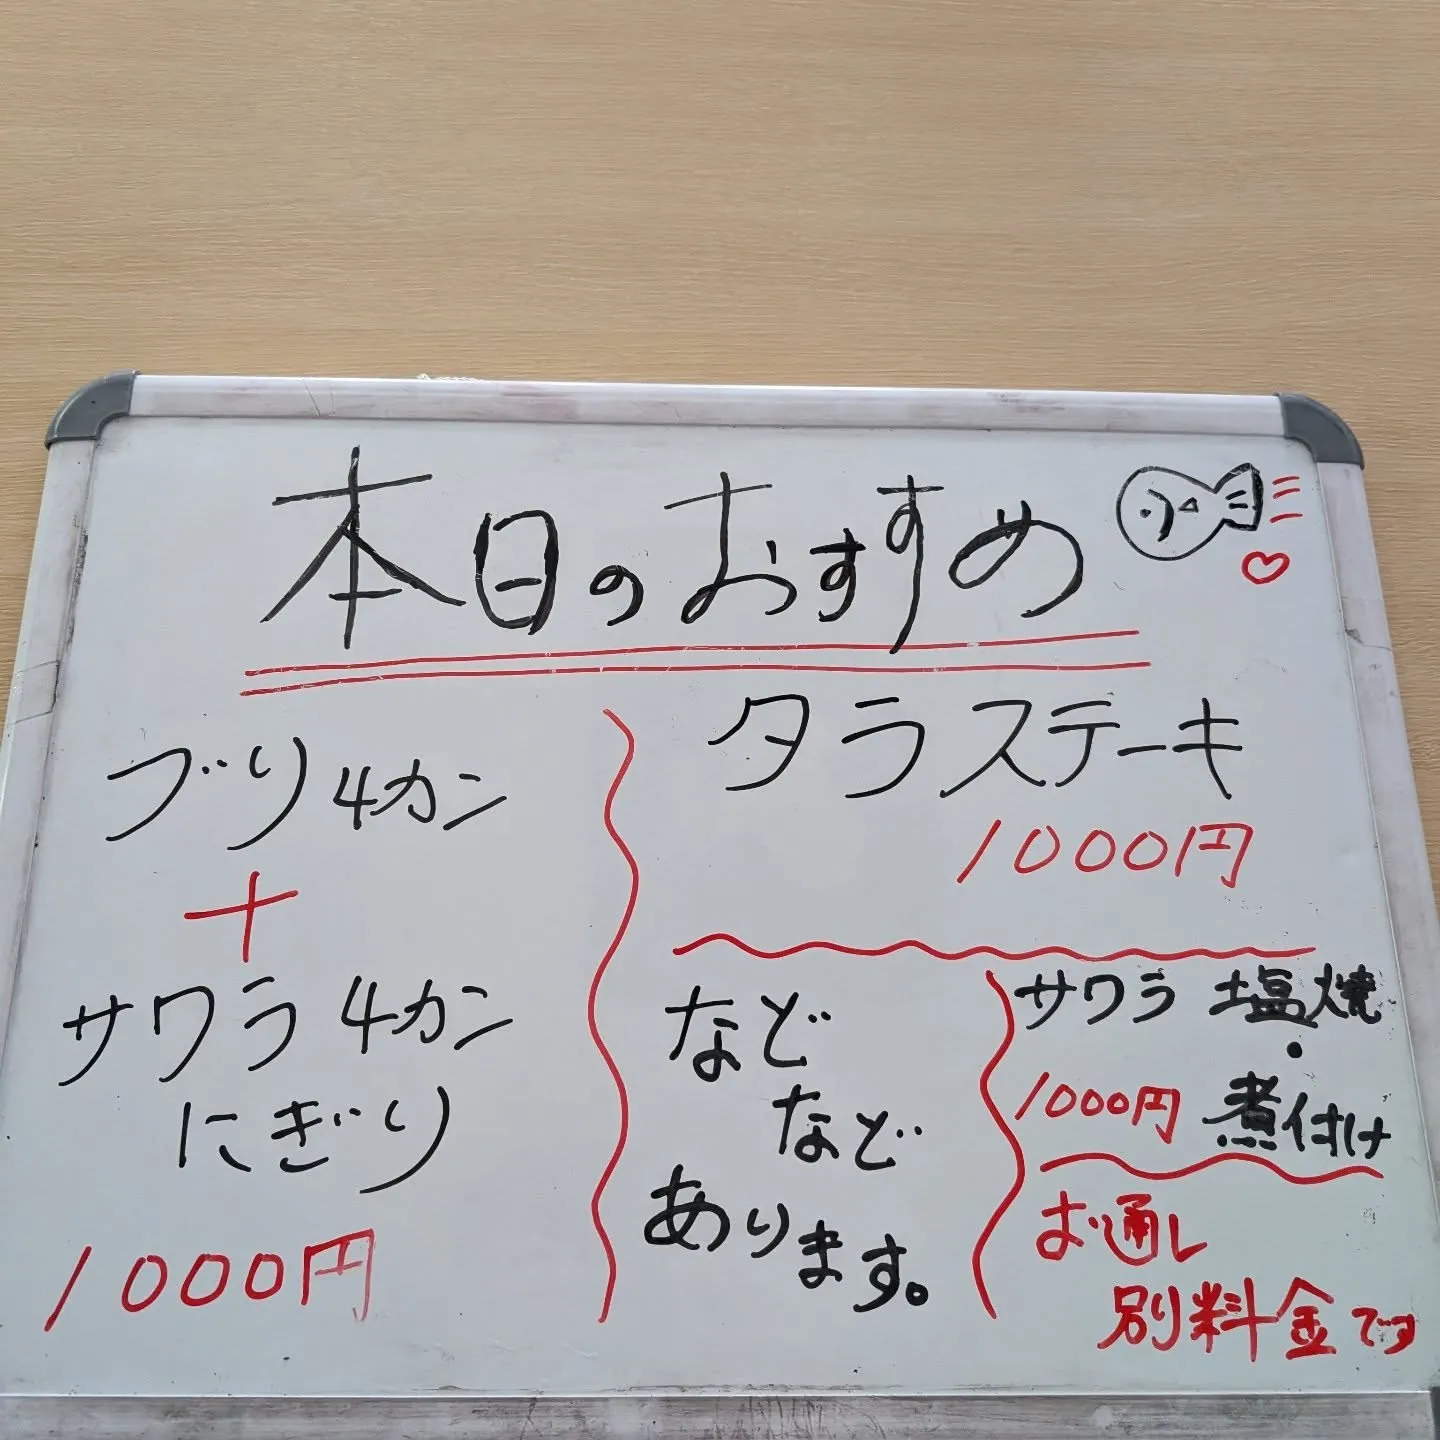 本日のおすすめ
ブリ4カン
+
サワラ4カン
にぎり
1000円
タラステーキ
1000円
などど
などど
あります。
サワラ 塩焼
・
1000円 煮付け
お通し
別料金です